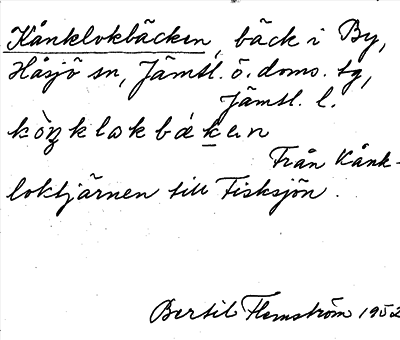 Kånklokbäcken, bäck i By,
Håsjö sn, Jämtl. ö. doms. tg,
Jämtl. l.
kòŋklokbäken
Från Kånk-
loktjärnen till Fisksjön.
Bertil Flemström 1952